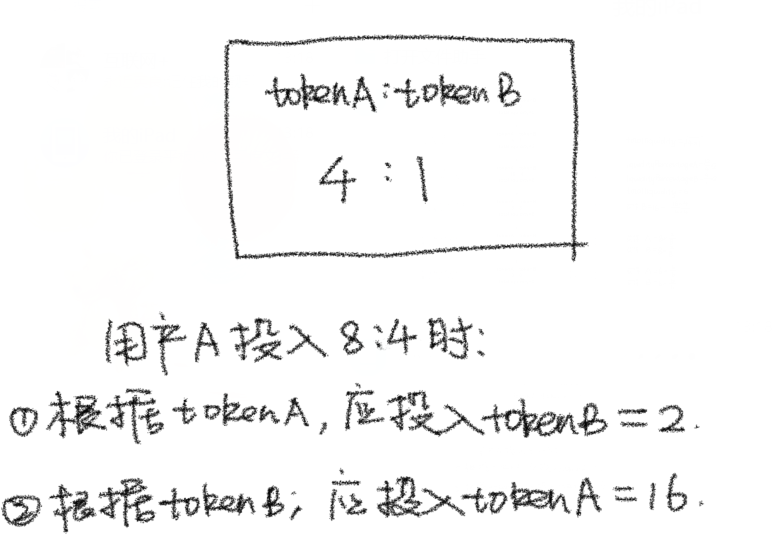 tokenA:tokenB
4:1
用户A投入8:4时:
①根据tokenA,应投入tokenB=2.
②根据tokenB;应投入tokenA=16.